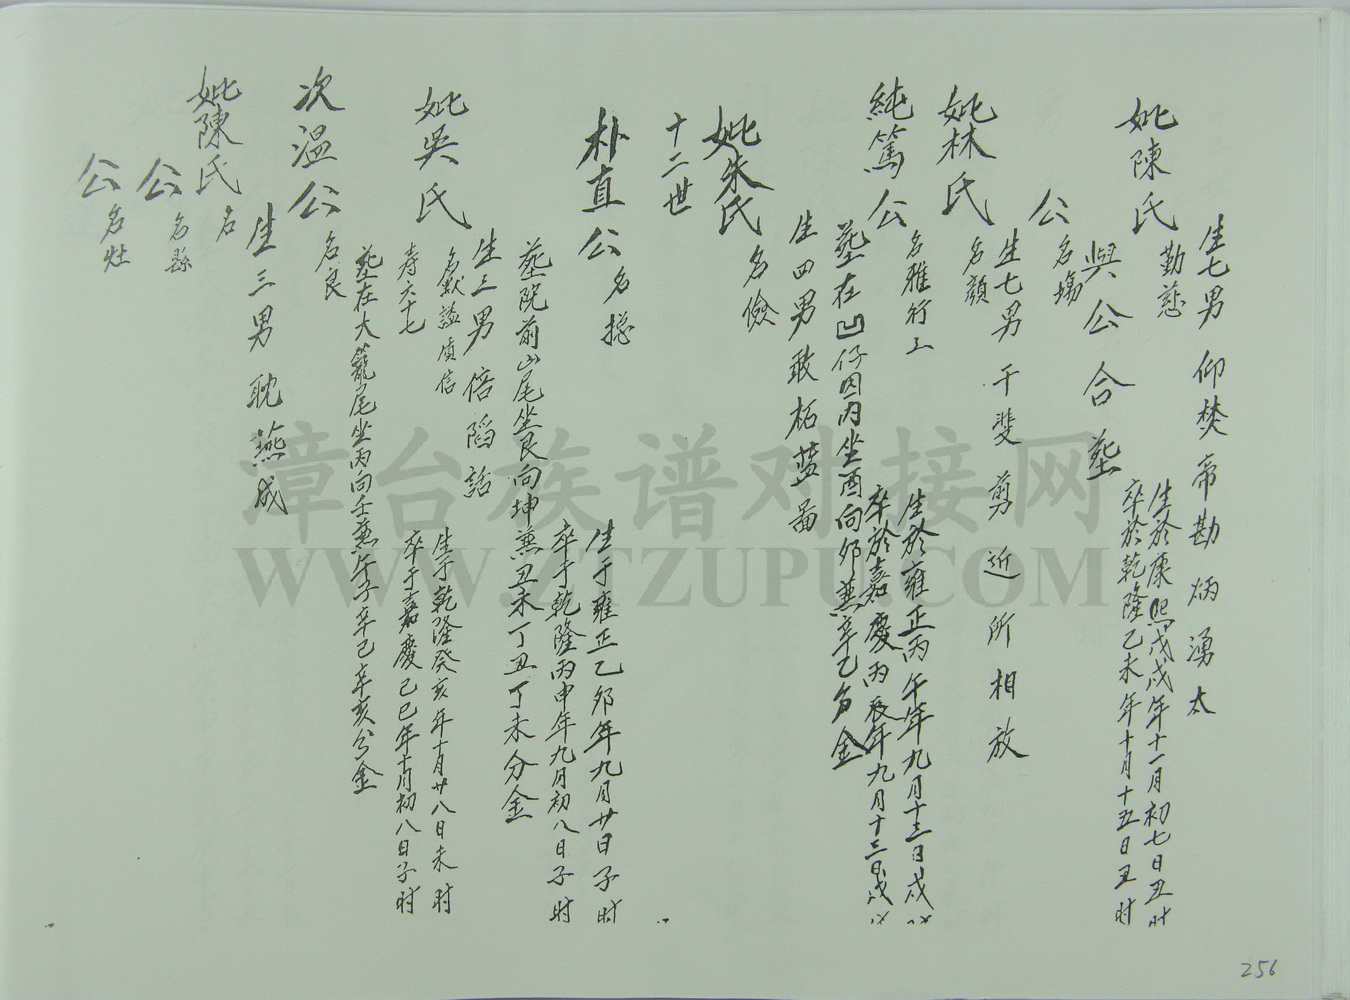 生七男 仰焚帝勘炳湧太
妣陳氏 勤慈 生於康熙戊戌年十一月初七日丑时
卒於乾隆乙未年十月十五日丑时
與公合葬
公 名塲
生七男 干斐剪近所相放
妣林氏 名顏
純篤公 名雅行三 生於雍正丙午年九月十三日戌时
卒於嘉慶丙辰年九月十三日戌时
葬在凹仔囡内坐酉向卯兼辛乙分金
生四男 敢栢蓝啚
妣朱氏 名儉
十二世
朴直公 名搃 生于雍正乙卯年九月廿日子时
卒于乾隆丙申年九月初八日子时
葬院前山尾坐艮向坤兼丑未丁丑丁未分金
生三男 倍 話
妣吳氏 名 謚慎信 生于乾隆癸亥年十月廿八日未时
壽六十七 卒于嘉慶己巳年十月初八日子时
葬在大籠尾坐丙向壬兼午子辛巳辛亥分金
次温公 名良
生三男 耽燕成
妣陳氏 名
公 名縣
公 名灶
256
漳台族谱对接网
WWW.ZTZUPU.COM